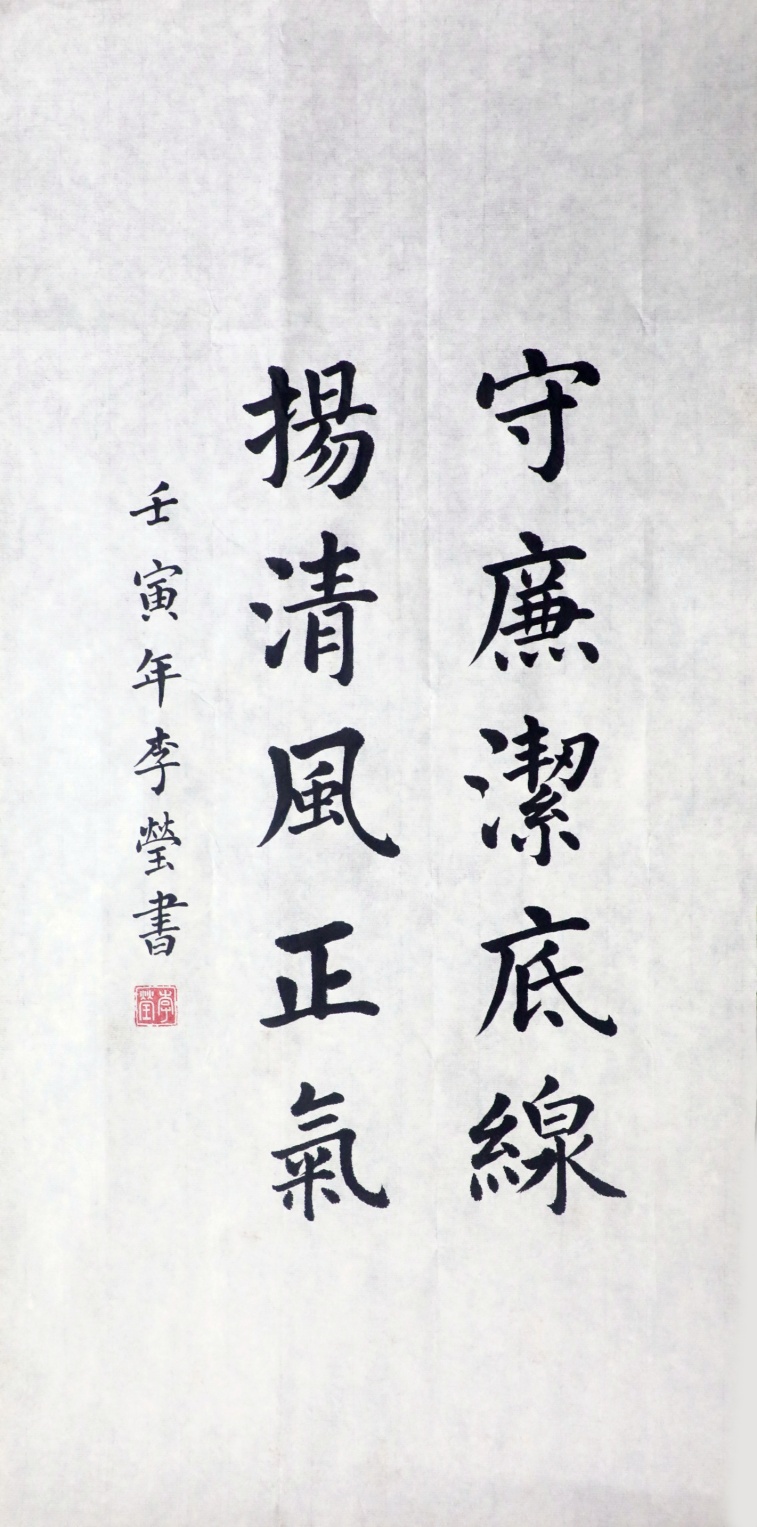 守廉潔底線
揚清風正氣
壬寅年李瑩書
李瑩